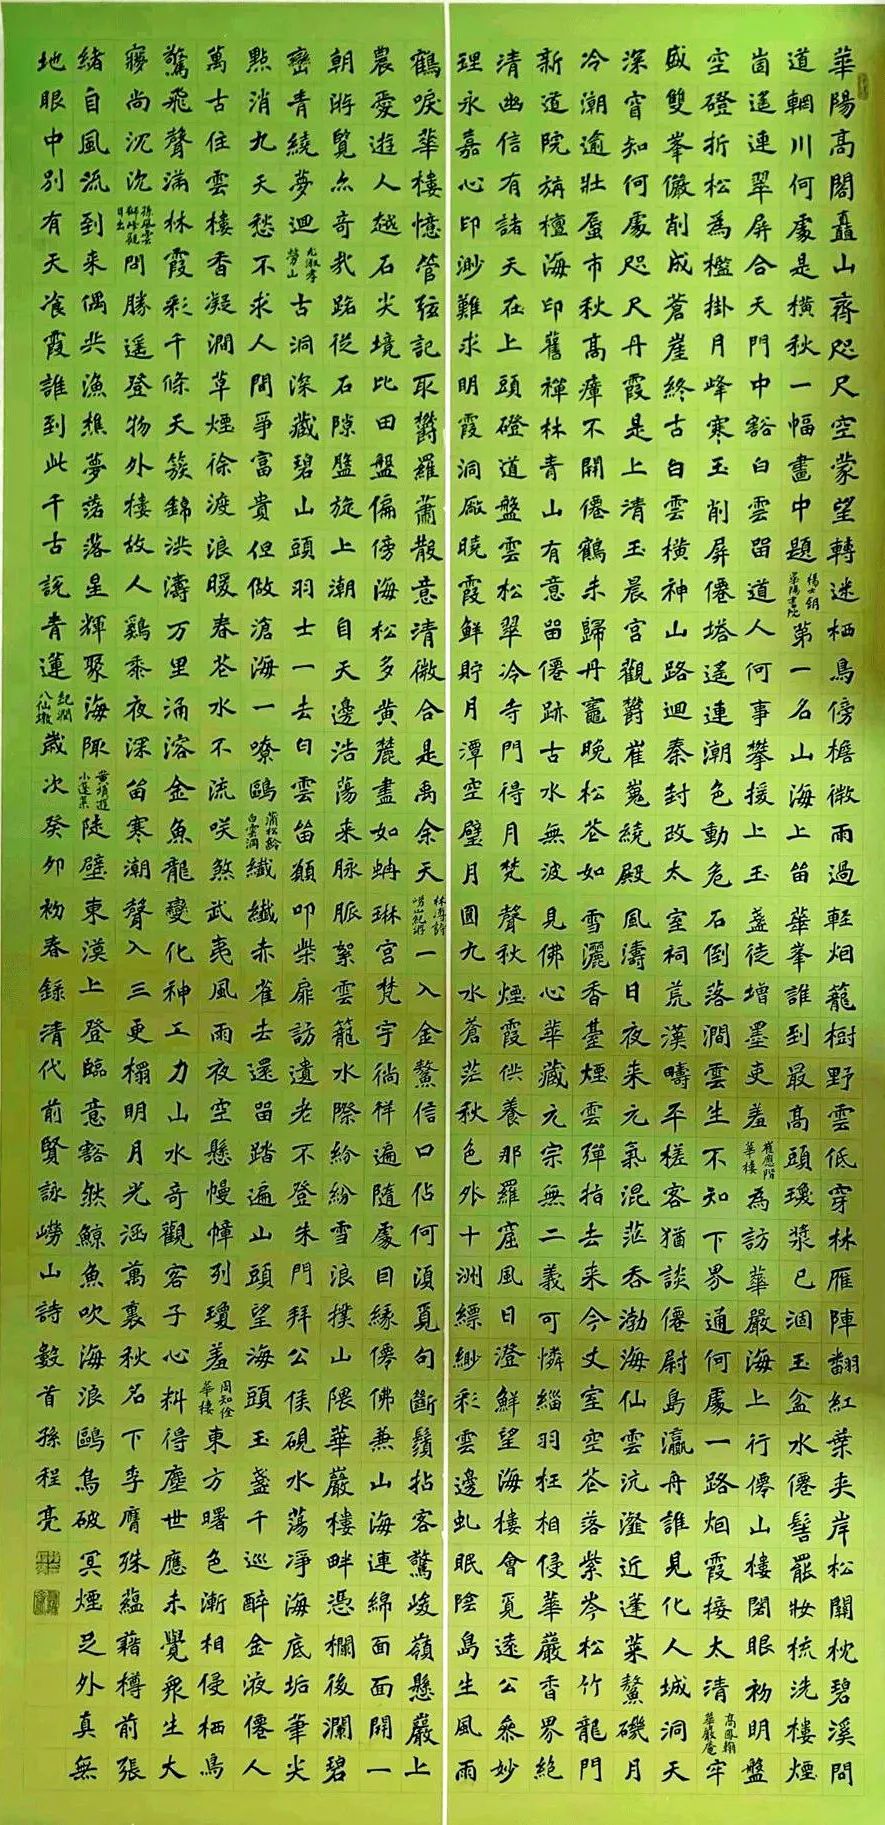 華陽高閣矗山齊咫尺空蒙望轉迷栖鳥傍檐微雨過輕烟籠樹野雲低穿林雁陣翻紅葉夾岸松關枕碧溪問
道輞川何處是橫秋一幅畫中題 楊士鈅華陽書院 第一名山海上笛華峯誰到最高頭瓊漿已涸玉盆水僊髻罷妝梳洗樓煙
崮遙連翠屏合天門中豁白雲留道人何事攀援上玉盞徒增墨吏羞 崔應階華樓 為訪華嚴海上行僊山樓閣眼初明盤
空磴折松為檻掛月峰寒玉削屏僊塔遙連潮色動危石倒落澗雲生不知下界通何處一路烟霞接太清 高鳳翰華嚴庵 牢
盛雙峯儼削成蒼崖終古白雲橫神山路迴秦封改太室祠荒漢疇平槎客猶談僊尉島瀛舟誰見化人城洞天
深窅知何處咫尺丹霞是上清玉晨宮觀欝崔嵬繞殿風濤日夜来元氣混茫吞渤海仙雲沆瀣近蓬萊鰲磯月
冷潮逾壯蜃市秋高瘴不開僊鶴未歸丹竈晚松花如雪灑香臺煙雲彈指去来今丈室空花落紫岑松竹龍門
新道院旃檀海印舊禪林青山有意留僊跡古水無波見佛心華藏元宗無二義可憐緇羽枉相侵華嚴香界絶
清幽信有諸天在上頭磴道盤雲松翠冷寺門得月梵聲秋煙霞供養那羅窟風日澄鮮望海樓會覓遠公叅妙
理永嘉心印渺難求明霞洞厰曉霞鮮貯月潭空璧月圓九水蒼茫秋色外十洲縹緲彩雲邊虬眠陰島生風雨
鶴唳華樓憶管弦記取欝羅蕭散意清微合是禹余天 林溥詩嶗山紀游 一入金鰲信口佔何須覓句斷鬚拈客驚峻嶺懸巖上
農愛遊人越石尖境比田盤偏傍海松多黄麓畫如蚺琳宮梵宇徜徉遍隨處目緣僊佛兼山海連綿面面開一
朝將覧亦奇哉路從石隙盤旋上潮自天邊浩蕩来脉脈絮雲籠水際紛紛雪浪撲山隈華嚴樓畔憑欄後瀾碧
巒青繞夢迴 尤淑孝勞山 古洞深藏碧山頭羽士一去白雲笛纇叩柴扉訪遺老不登朱門拜公侯硯水蕩淨海底垢筆尖
點消九天愁不求人間爭富貴但做滄海一嘹鷗 蒲松齡白雲洞 纖纖赤雀去還留踏遍山頭望海頭玉盞千巡醉金液僊人
萬古住雲樓香凝澗草煙徐渡浪暖春花水不流咲煞武夷風雨夜空懸幔幛列瓊羞 周知佺華樓 東方曙色漸相侵栖鳥
驚飛聲滿林霞彩千條天簇錦洪濤万里涌溶金魚龍變化神工力山水奇觀客子心料得塵世應未覺衆生大
寢尚沉沉 孫鳳雲獅峰觀日出 問勝遥登物外樓故人鷄黍夜深笛寒潮聲入三更榻明月光涵萬裏秋名下李膺殊蘊藉樽前張
緒自風流到来偶共漁樵夢落落星輝聚海陬 黄肇遊小蓬萊 陡壁東溟上登臨意豁然鯨魚吹海浪鷗鳥破冥煙足外真無
地眼中別有天飡霞誰到此千古説青蓮 紀潤八仙墩 歲次癸卯初春錄清代前賢詠嶗山詩數首孫程亮